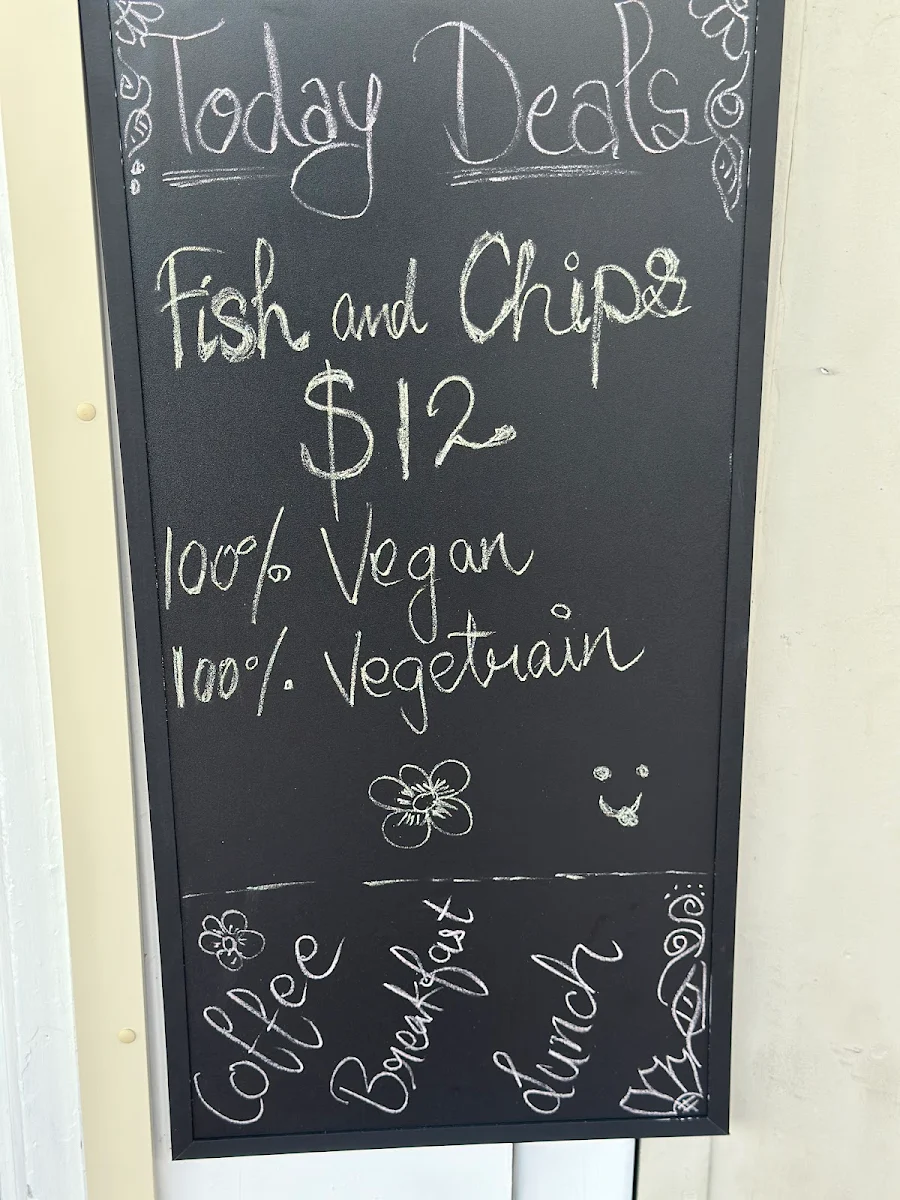 Today Deals
Fish and Chips
$12
100% Vegan
100% Vegetrain
Coffee
Breakfast
Lunch